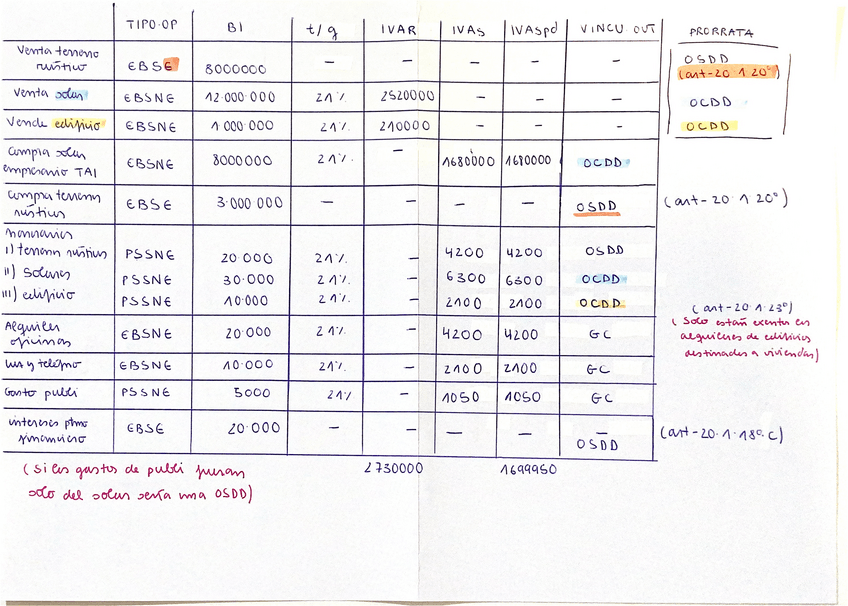 TIPO-OP BI t/g IVAR IVAs IVAspd VINCU OUT PRORRATA
Venta terreno rústico EBSE 8000000 — — — — — OSDD (art-20.1.20º)
Venta solar EBSNE 12.000.000 21% 2520000 — — — OCDD
Vende edificio EBSNE 1.000.000 21% 210000 — — — OCDD
Compra solar empresario TAI EBSNE 8000000 21% — 1680000 1680000 OCDD
Compra terreno rústicos EBSE 3.000.000 — — — — OSDD (art-20.1.20º)
Honorarios
i) terreno rústicos PSSNE 20.000 21% — 4200 4200 OSDD
ii) Solares PSSNE 30.000 21% — 6300 6300 OCDD
iii) edificio PSSNE 10.000 21% — 2100 2100 OCDD
(art-20.1.23º)
(Solo están exentos los
alquileres de edificios
destinados a viviendas)
Alquiler oficinas EBSNE 20.000 21% — 4200 4200 GC
Luz y teléfono EBSNE 10.000 21% — 2100 2100 GC
Gasto publi PSSNE 5000 21% — 1050 1050 GC
intereses ptmo financiero EBSE 20.000 — — — — — OSDD (art-20.1.18º.C)
2730000 1699950
(si los gastos de publi fueran
solo del solar sería una OSDD)